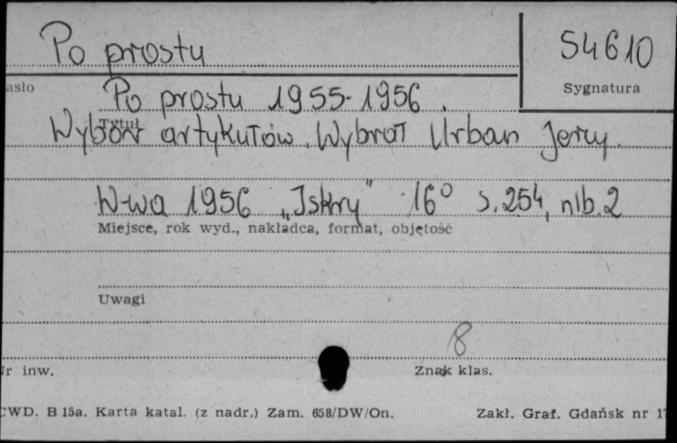 Po prostu
54610
asło
Sygnatura
Po prostu 1955-1956.
Tytuł
Wybór artykułów. Wybrał Urban Jerzy.
W-wa 1956 „Iskry” 16° s. 254, nlb. 2
Miejsce, rok wyd., nakładca, format, objętość
Uwagi
8
Nr inw.
Znak klas.
CWD. B 15a. Karta katal. (z nadr.) Zam. 658/DW/On.
Zakł. Graf. Gdańsk nr 1